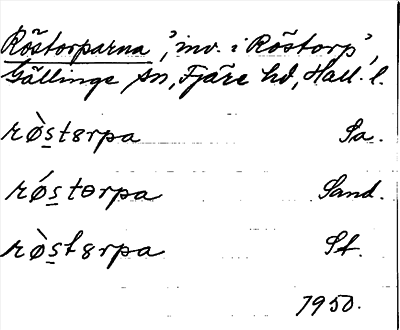 Röstorparna, 'inv. i Röstorp',
Gällinge sn, Fjäre hd, Hall. l.
rø̀s̲tɵrpa Sa.
rǿs̲tɵrpa Sand.
rø̀s̲tɵrpa St.
1950.